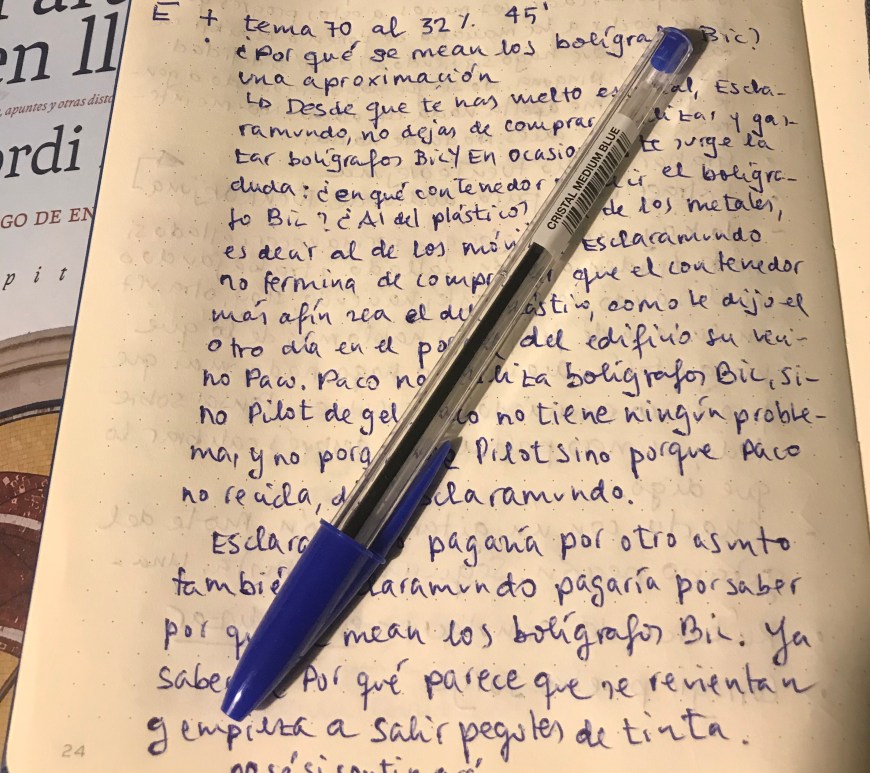 E + tema 70 al 32% 45'
¿Por qué se mean los bolígra Bic?
una aproximación
↳ Desde que te has vuelto es al, Escla-
ramundo, no dejas de comprar litar y gas-
tar bolígrafos Bic y En ocasio te surge la
duda: ¿en qué contenedor el bolígra-
fo Bic? ¿Al del plástico? de los metales,
es decir al de los Esclaramundo
no termina de comp que el contenedor
más afín sea el del ástico, como le dijo el
otro día en el po del edificio su veci-
no Paco. Paco no liza bolígrafos Bic, si-
no Pilot de gel no tiene ningún proble-
ma, y no porq Pilot sino porque Paco
no recicla, d sclaramundo.
Esclara pagaría por otro asunto
tambié laramundo pagaría por saber
por q mean los bolígrafos Bic. Ya
sabe Por qué parece que se revientan
y empieza a salir pegotes de tinta.
no sé si
24
CRISTAL MEDIUM BLUE
en ll
, apuntes y otras disto
ordi
GO DE EN
p i t